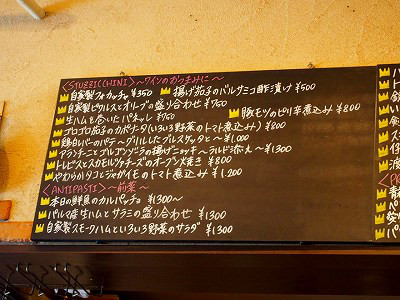 〈STUZZICCHINI〉〜ワインのおつまみに〜
自家製フォカッチャ ¥350 揚げ茄子のバルサミコ酢漬け ¥500
自家製ピクルスとオリーブの盛り合わせ ¥750
生ハムを巻いたパネッレ ¥750 豚モツのピリ辛煮込み ¥800
ゴロゴロ茄子のカポナータ(いろいろ野菜のトマト煮込み) ¥800
鶏白レバーのパテ〜グリルしたブルスケッタと〜 ¥1,000
アランチーニとゴルゴンゾーラの揚げニョッキ〜ラルド添え〜 ¥1300
トレビスとスカモルツァチーズのオーブン焼き ¥800
やわらかタコとジャガイモのトマト煮込み ¥1,200
〈ANTIPASTI〉〜前菜〜
本日の鮮魚のカルパッチョ ¥1300〜
パルマ産生ハムとサラミの盛り合わせ ¥1300
自家製スモークハムといろいろ野菜のサラダ ¥1300